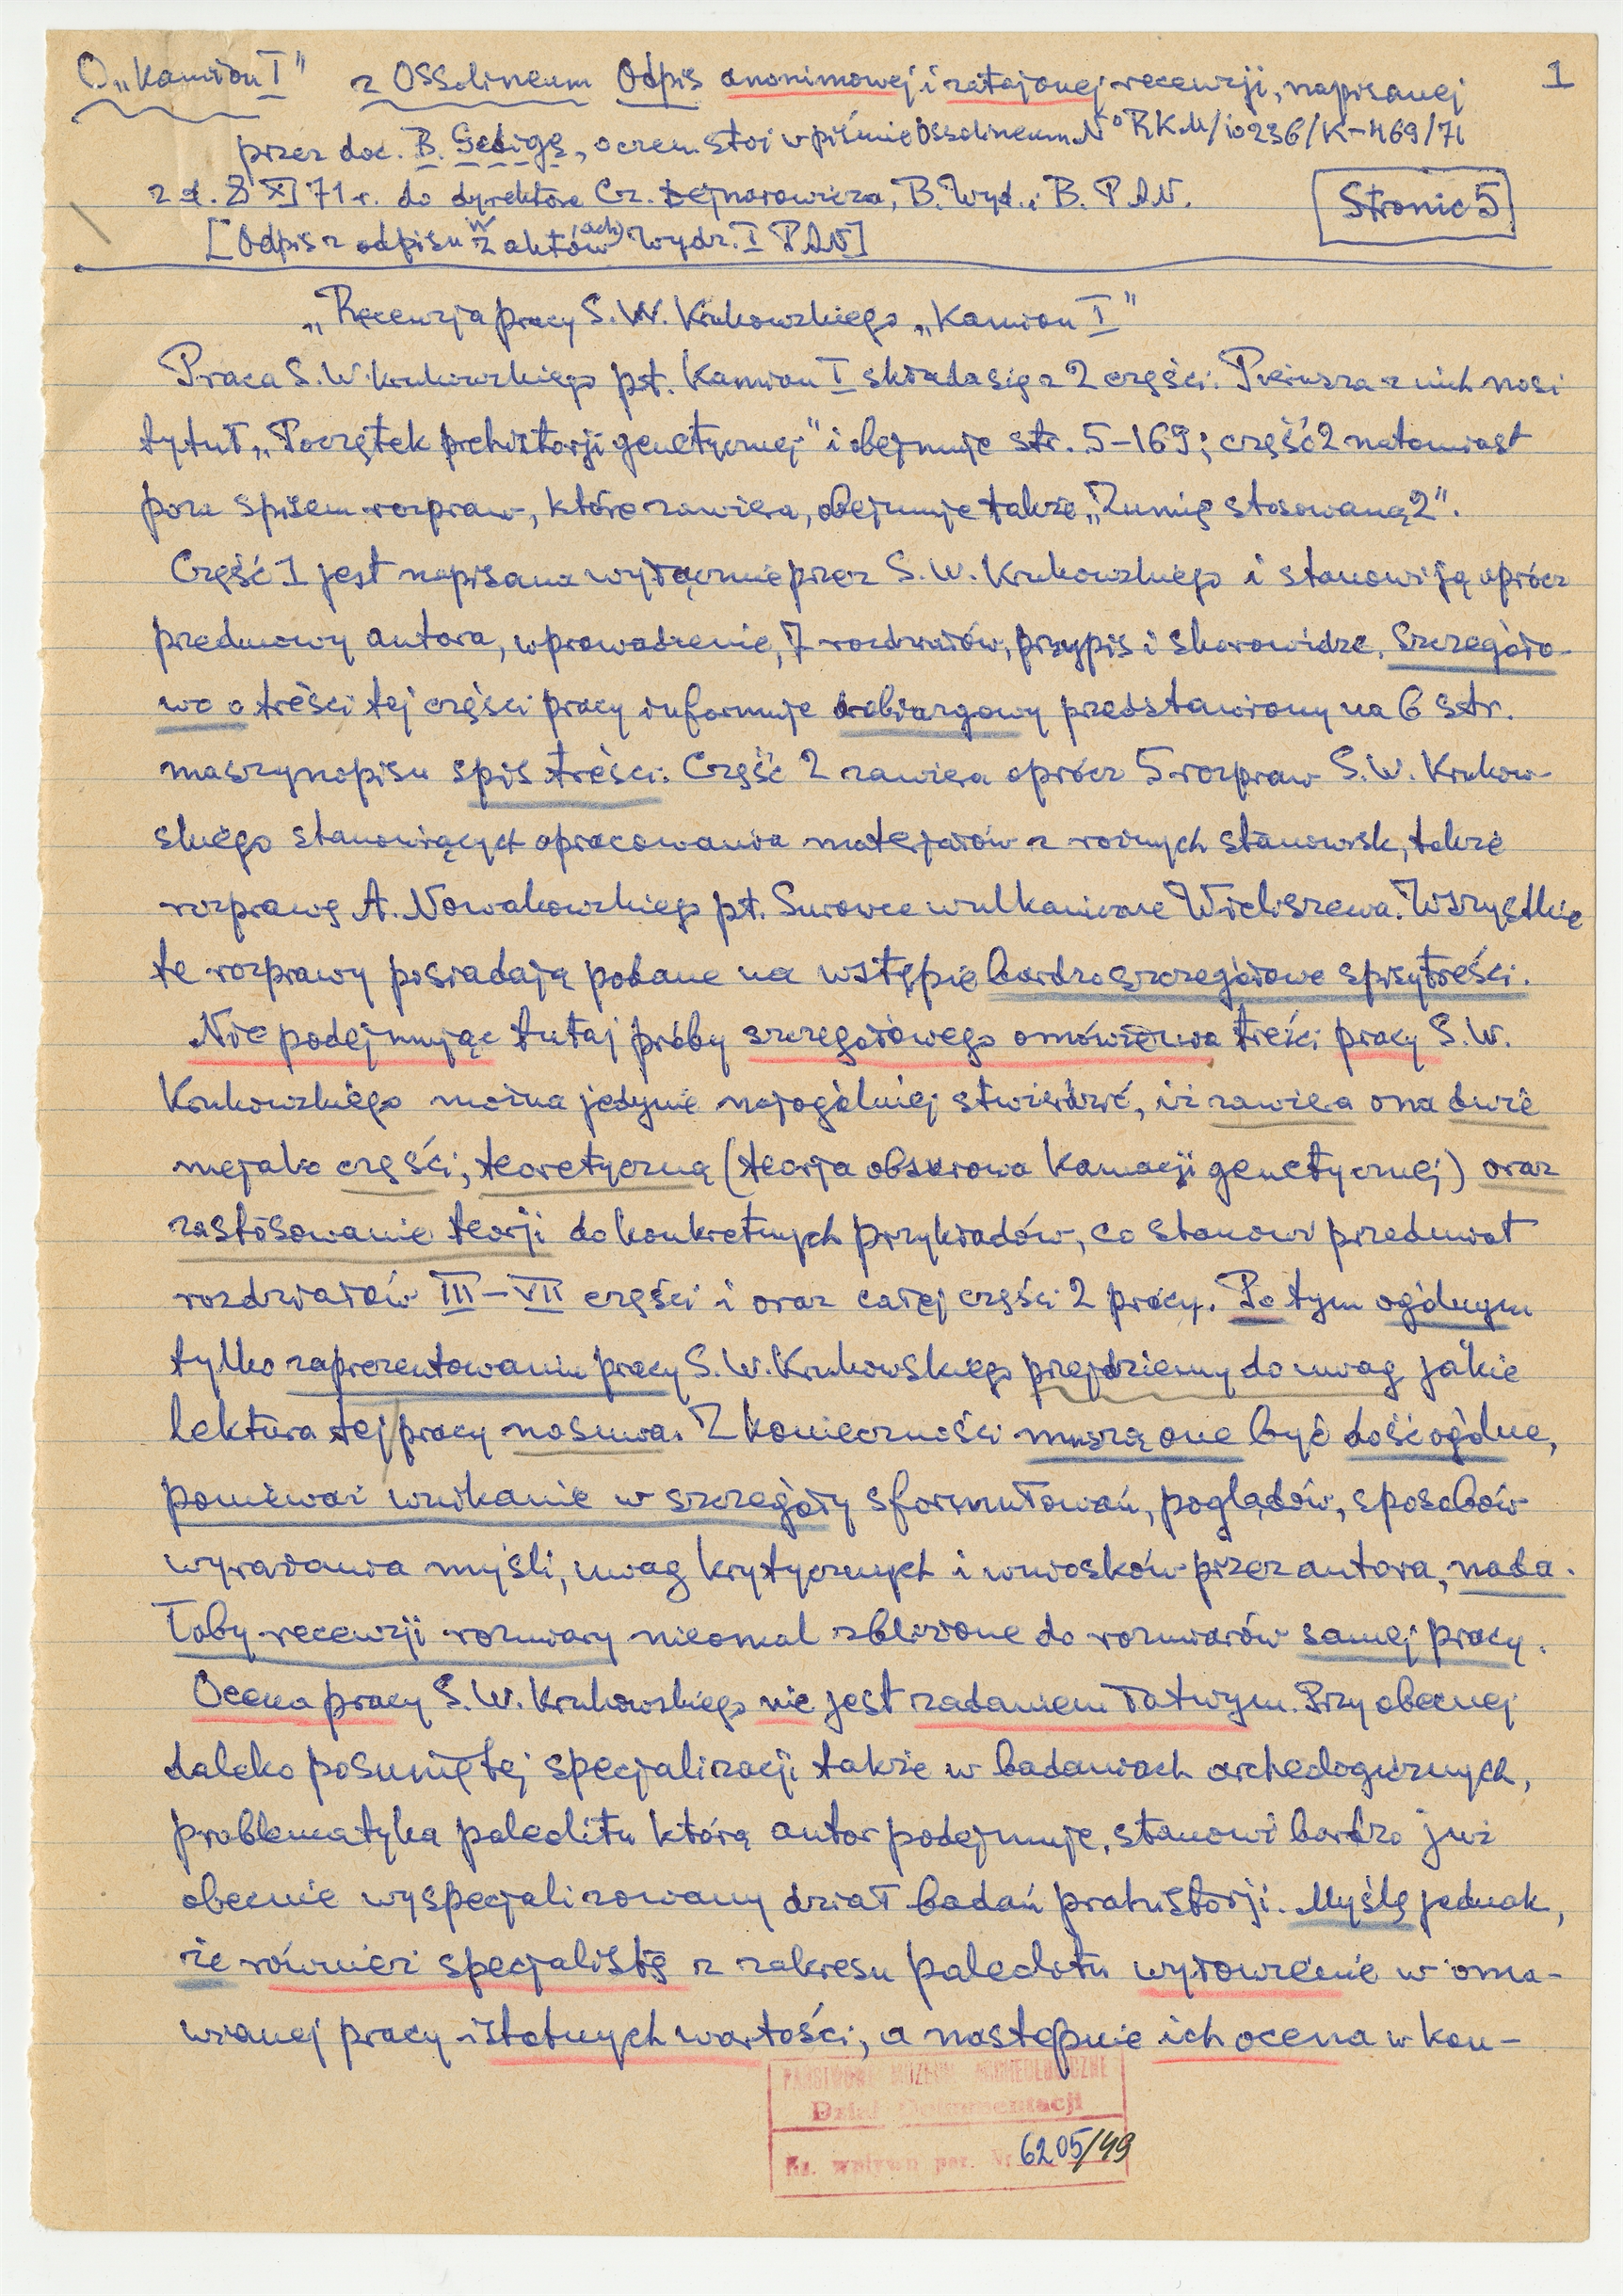 O „Kamion I” z Ossolineum Odpis anonimowej i zatajonej recenzji, napisanej 1
przez doc. B. Gedigę, o czem stoi w piśmie Ossolineum No RKM/10236/K-469/71
z d. 8 XI 71 r. do dyrektora Cz. Bejnarowicza, B. Wyd. i B. P.A.N. Stronic 5
[Odpis z odpisu w aktach Wydz. I PAN]
„Recenzja pracy S. W. Krukowskiego „Kamion I”
Praca S. W. Krukowskiego pt. Kamion I składa się z 2 części. Pierwsza z nich nosi
tytuł „Początek prehistorji genetycznej” i obejmuje str. 5-169; część 2 natomiast
poza spisem rozpraw, które zawiera, obejmuje także „Zumię stosowaną 2”.
Część 1 jest napisana wyłącznie przez S. W. Krukowskiego i stanowi ją oprócz
przedmowy autora, wprowadzenie, 7 rozdziałów, przypis i skorowidze. Szczegóło-
wo o treści tej części pracy informuje drobiazgowy przedstawiony na 6 str.
maszynopisu spis treści. Część 2 zawiera oprócz 5 rozpraw S. W. Krukow-
skiego stanowiących opracowania materjałów z różnych stanowisk, także
rozprawę A. Nowakowskiego pt. Surowce wulkaniczne Wieliszewa. Wszystkie
te rozprawy posiadają podane na wstępie bardzo szczegółowe spisy treści.
Nie podejmując tutaj próby szczegółowego omówienia treści pracy S. W.
Krukowskiego można jedynie najogólniej stwierdzić, iż zawiera ona dwie
niejako części; teoretyczną (teorja obszarowa Kamacji genetycznej) oraz
zastosowanie teorji do konkretnych przykładów, co stanowi przedmiot
rozdziałów III-VII części 1 oraz całej części 2 pracy. Po tym ogólnym
tylko zaprezentowaniu pracy S. W. Krukowskiego przejdziemy do uwag jakie
lektura tej pracy nasuwa. Z konieczności muszą one być dość ogólne,
ponieważ wnikanie w szczegóły sformułowań, poglądów, sposobów
wyrażania myśli, uwag krytycznych i wniosków przez autora, nada-
łoby recenzji rozmiary nieomal zbliżone do rozmiarów samej pracy.
Ocena pracy S. W. Krukowskiego nie jest zadaniem łatwym. Przy obecnej
daleko posuniętej specjalizacji także w badaniach archeologicznych,
problematyka paleolitu którą autor podejmuje, stanowi bardzo już
obecnie wyspecjalizowany dział badań prahistorji. Myślę jednak,
że również specjaliście z zakresu paleolitu wyłowienie w oma-
wianej pracy istotnych wartości, a następnie ich ocena w kon-
PAŃSTWOWE MUZEUM ARCHEOLOGICZNE
Dział Dokumentacji
Ks. wpływu Nr 6205/49